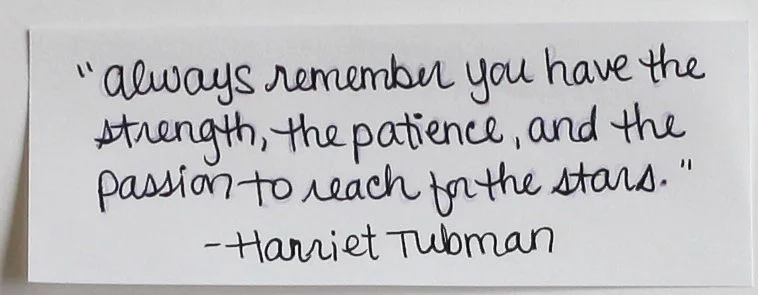 "always remember you have the
strength, the patience, and the
passion to reach for the stars."
-Harriet Tubman